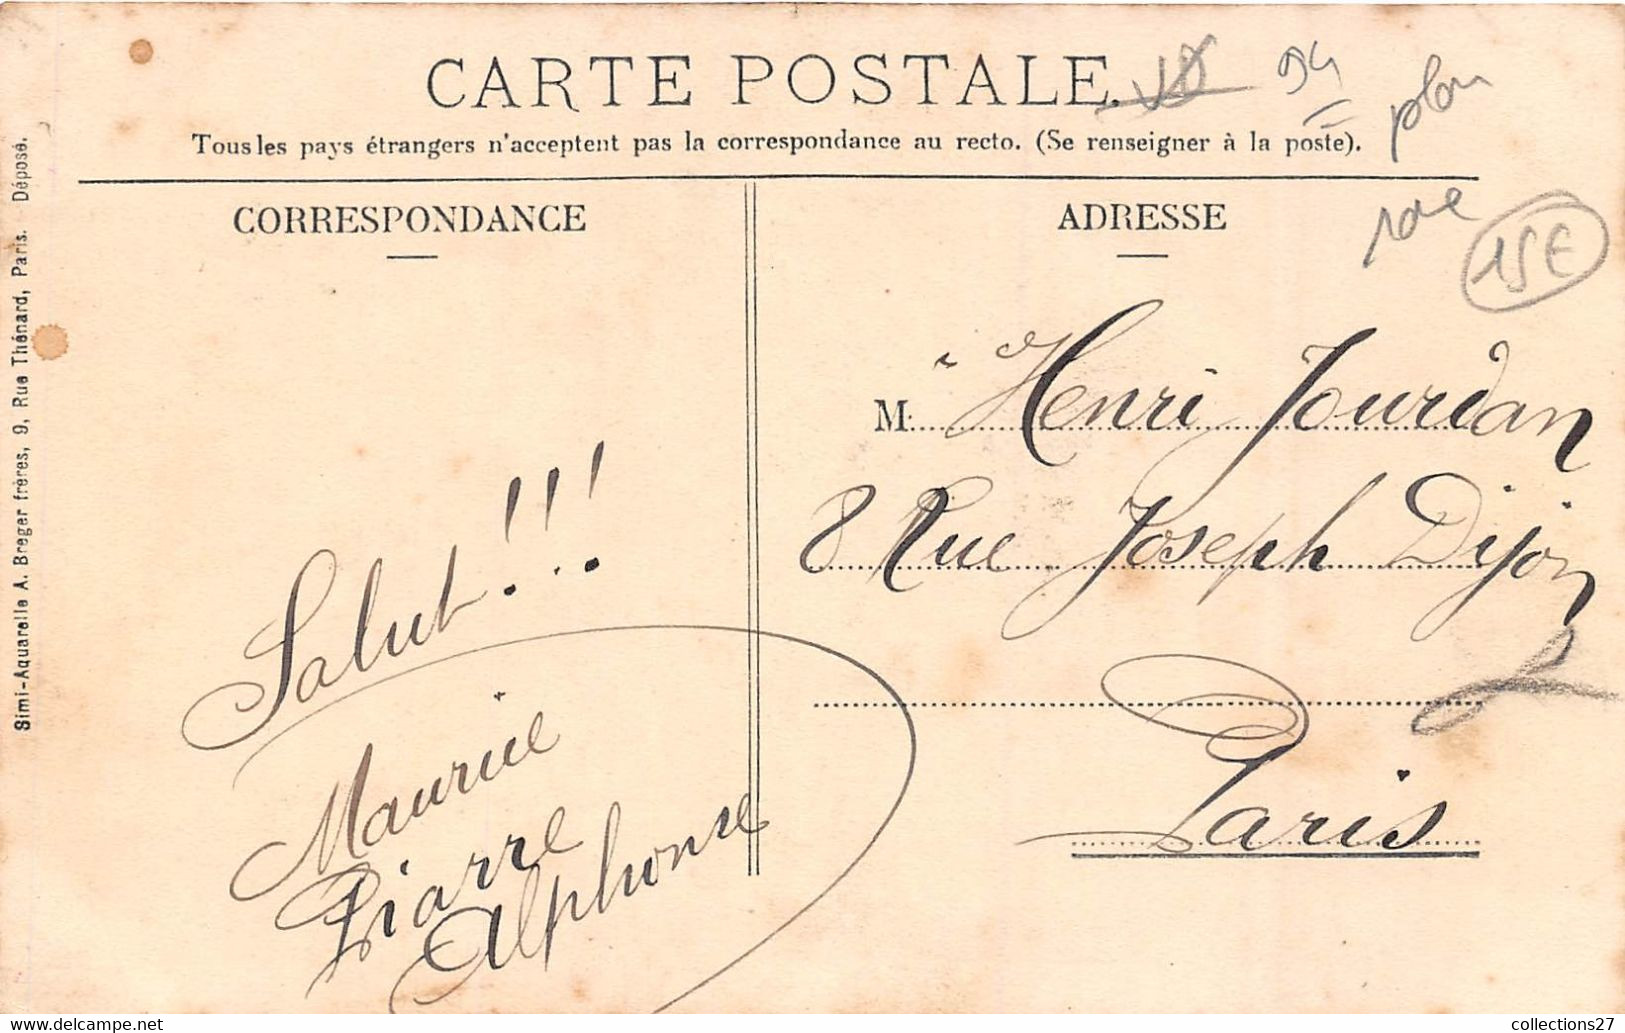 CARTE POSTALE.
94
plan
rare
15€
Tous les pays étrangers n'acceptent pas la correspondance au recto. (Se renseigner à la poste).
Simi-Aquarelle A. Breger frères, 9, Rue Thénard, Paris. Déposé.
CORRESPONDANCE
Salut!!!
Maurice
Piarre
Alphonse
ADRESSE
M. Henri Jourdan
8 Rue Joseph Dijon
Paris
collections27